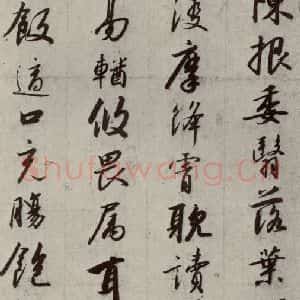 陳根委翳落葉
淩摩絳霄耽讀
易輶攸畏属耳
飯適口充腸飽
Shufawang.Cn